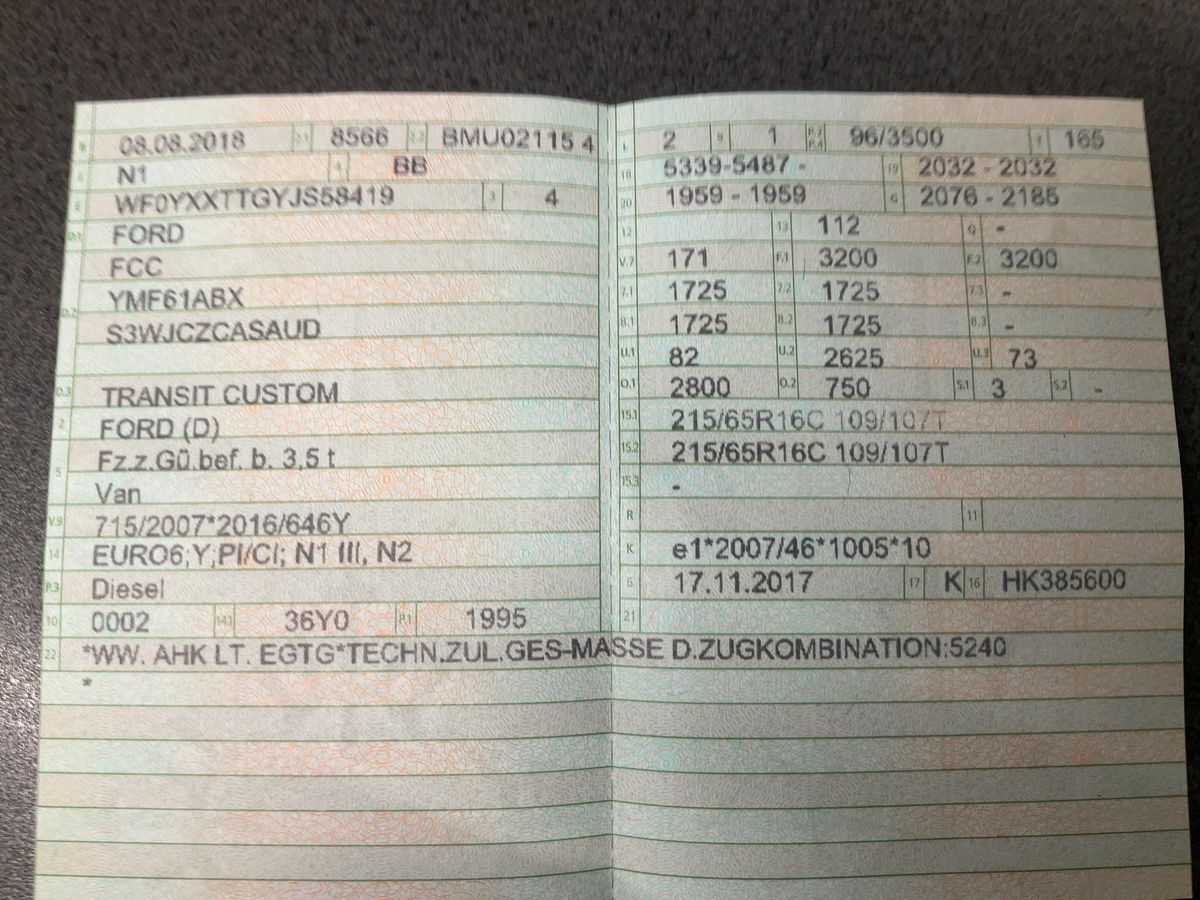 B 08.08.2018 2.1 8566 2.2 BMU02115 4
J N1 4 BB
E WF0YXXTTGYJS58419 3 4
D.1 FORD
FCC
D.2 YMF61ABX
S3WJCZCASAUD
D.3 TRANSIT CUSTOM
2 FORD (D)
5 Fz.z.Gü.bef. b. 3,5 t
Van
V.9 715/2007*2016/646Y
14 EURO6;Y,PI/CI; N1 III, N2
P.3 Diesel
10 0002 14.1 36Y0 P.1 1995
L 2 9 1 P.2 P.4 96/3500 T 165
18 5339-5487 - 19 2032 - 2032
20 1959 - 1959 G 2076 - 2185
12 13 112 Q -
V.7 171 F.1 3200 F.2 3200
7.1 1725 7.2 1725 7.3 -
8.1 1725 8.2 1725 8.3 -
U.1 82 U.2 2625 U.3 73
O.1 2800 O.2 750 S.1 3 S.2 -
15.1 215/65R16C 109/107T
15.2 215/65R16C 109/107T
15.3 -
R 11
K e1*2007/46*1005*10
6 17.11.2017 17 K 16 HK385600
21
22 *WW. AHK LT. EGTG*TECHN.ZUL.GES-MASSE D.ZUGKOMBINATION:5240
*